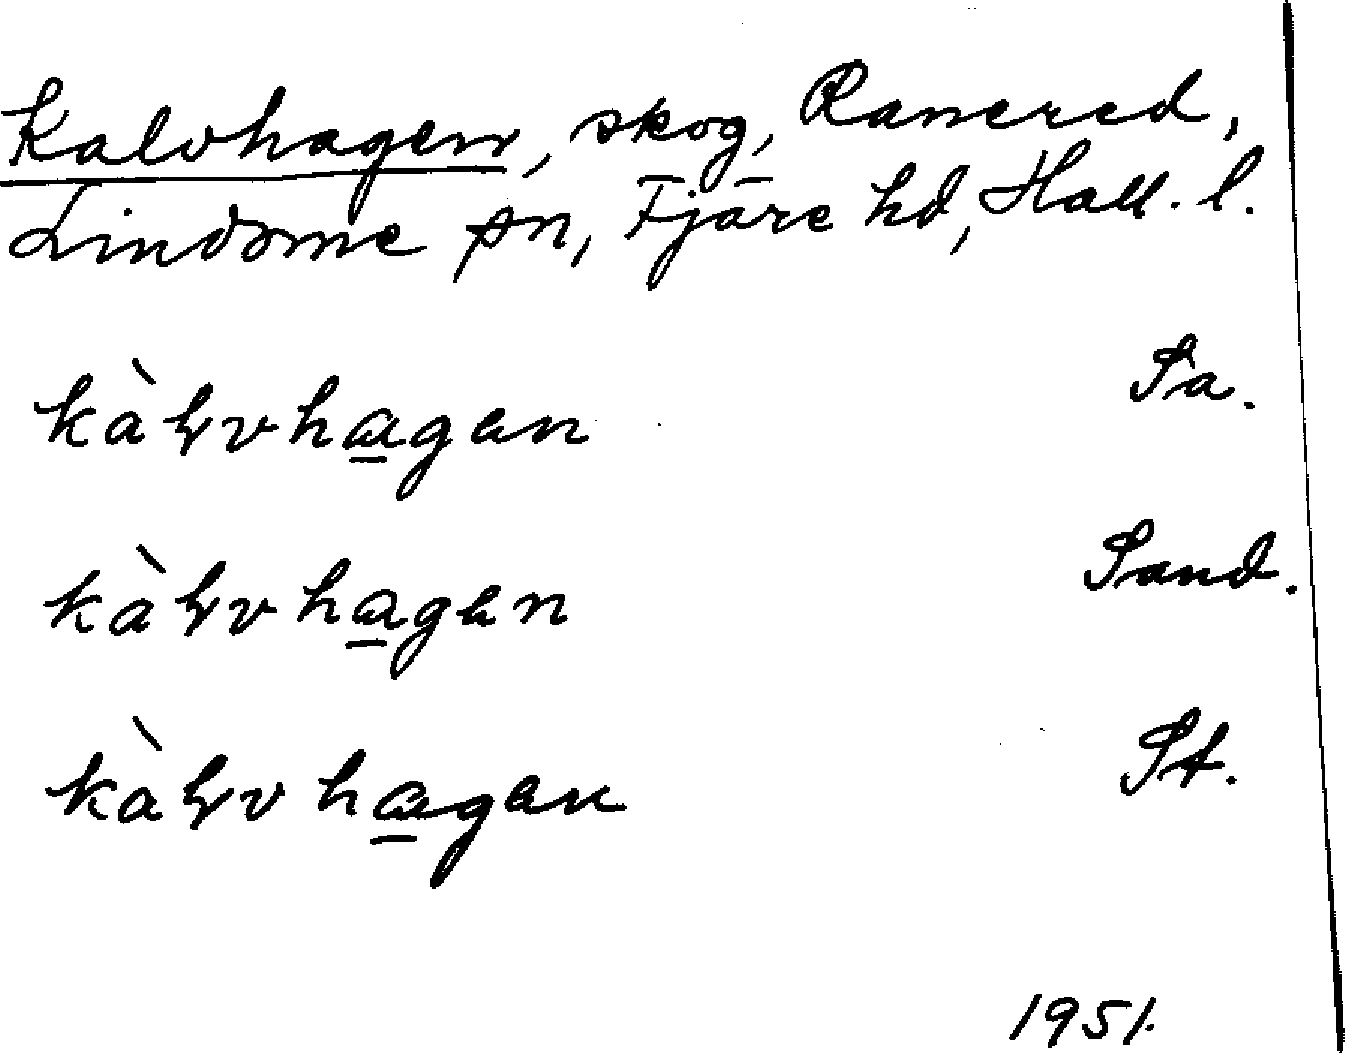 Kalvhagen, skog, Ranered,
Lindome sn, Fjäre hd, Hall. l.
kàƚvhagan Sa.
kàƚvhagan Sand.
kàƚvhagan St.
1951.